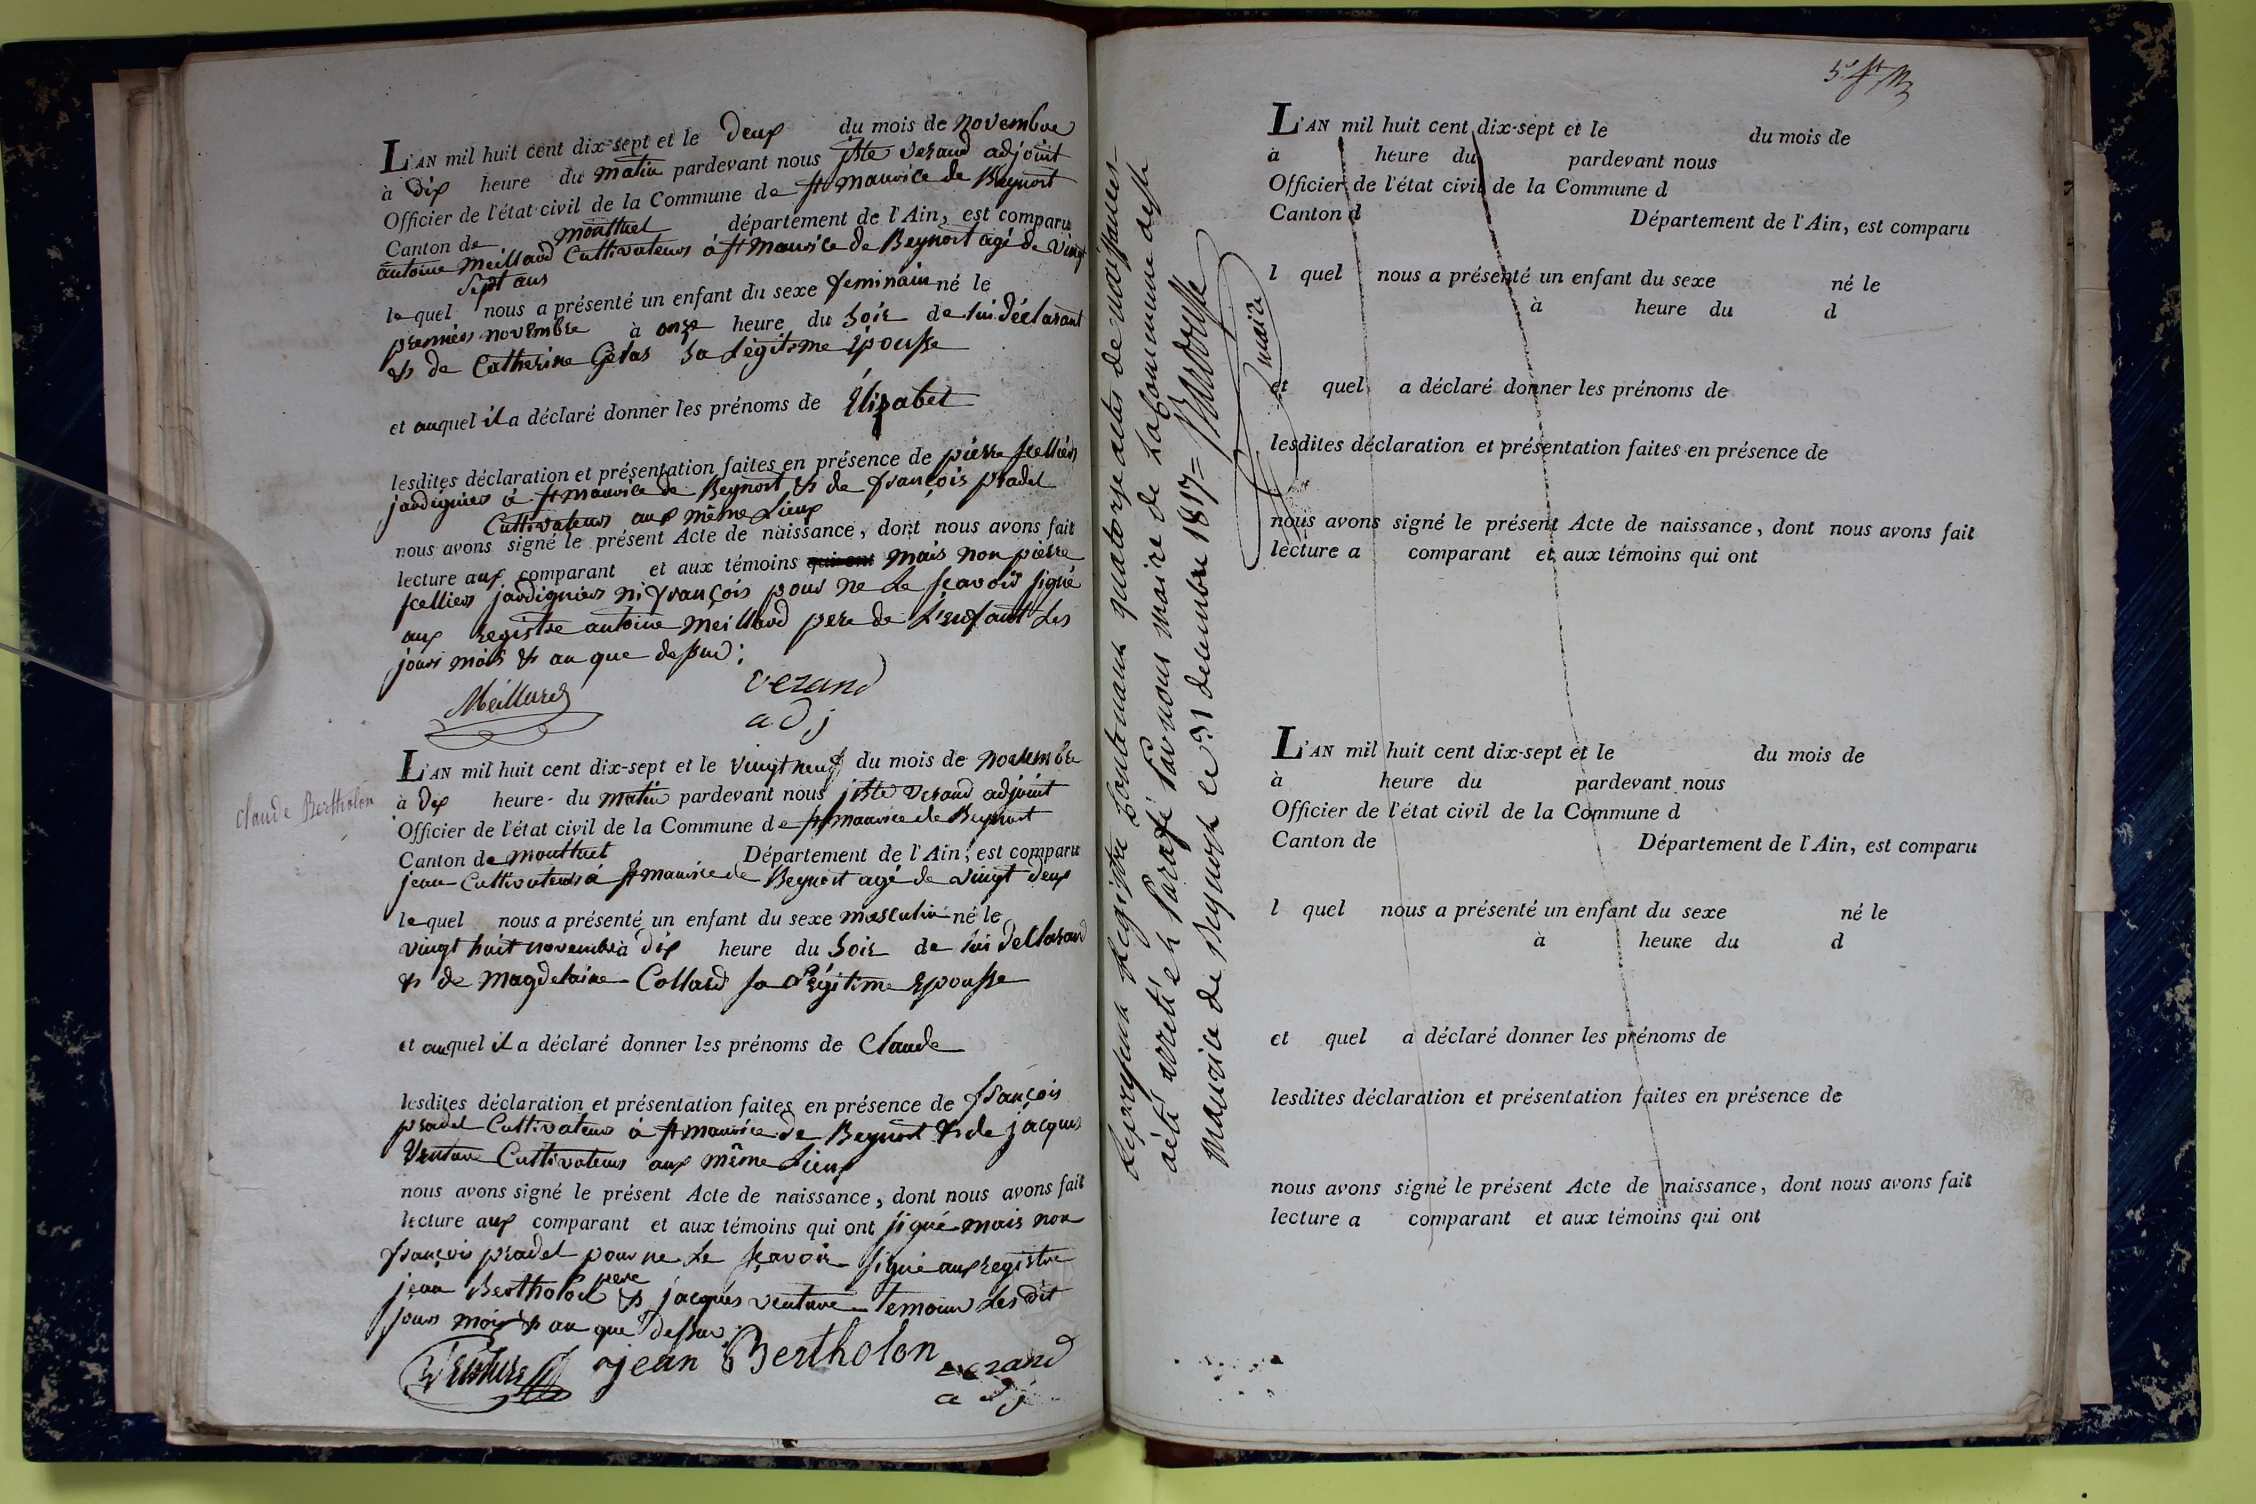 L'AN mil huit cent dix-sept et le deux du mois de novembre
à dix heure du matin pardevant nous jste verand adjoint
Officier de l'état civil de la Commune de st maurice de Beynost
Canton de montluel département de l'Ain, est comparu
antoine meillard Cultivateur à st maurice de Beynost agé de vingt
sept ans
lequel nous a présenté un enfant du sexe feminain né le
premier novembre à onze heure du soir de lui déclarant
& de Catherine Gelas sa légitime épousse
et auquel il a déclaré donner les prénoms de Élizabet
lesdites déclaration et présentation faites en présence de pierre scellier
jardignier à st maurice de Beynost & de françois pradel
Cultivateur aux même Lieux
nous avons signé le présent Acte de naissance, dont nous avons fait
lecture aux comparant et aux témoins qui ont mais non pierre
scellier jardignier ni françois pour ne le sçavoir signé
aux registre antoine meillard pere de L'enfant les
jour mois & an que dessus;
Meillard verand
adj
Claude Bertholon
L'AN mil huit cent dix-sept et le vingt neuf du mois de novembre
à dix heure du matin pardevant nous jste verand adjoint
Officier de l'état civil de la Commune de st maurice de Beynost
Canton de montluel Département de l'Ain, est comparu
jean Cultivateur à st maurice de Beynost agé de vingt deux
lequel nous a présenté un enfant du sexe masculin né le
vingt huit novembre à dix heure du soir de lui dellarand
& de magdelaine Collard sa légitime Epousse
et auquel il a déclaré donner les prénoms de Claude
lesdites déclaration et présentation faites en présence de françois
pradel Cultivateur à st maurice de Beynost & de jacques
Venture Cultivateur aux même Lieux
nous avons signé le présent Acte de naissance, dont nous avons fait
lecture aux comparant et aux témoins qui ont signé mais non
françois pradel pour ne le sçavoir signé aux registre
jean Bertholod pere & jacques venture temoins les dit
jour mois & an que dessus
Venture jean Bertholon verand
adj
Le present Registre Contenant quatorze actes de naissances
a été arreté et Parafé Par nous maire de la Commune de st
Maurice de Beynost ce 31 decembre 1817 =
maire
L'AN mil huit cent dix-sept et le du mois de
à heure du pardevant nous
Officier de l'état civil de la Commune d
Canton d Département de l'Ain, est comparu
l quel nous a présenté un enfant du sexe né le
à heure du d
et quel a déclaré donner les prénoms de
lesdites déclaration et présentation faites en présence de
nous avons signé le présent Acte de naissance, dont nous avons fait
lecture a comparant et aux témoins qui ont
L'AN mil huit cent dix-sept et le du mois de
à heure du pardevant nous
Officier de l'état civil de la Commune d
Canton de Département de l'Ain, est comparu
l quel nous a présenté un enfant du sexe né le
à heure du d
et quel a déclaré donner les prénoms de
lesdites déclaration et présentation faites en présence de
nous avons signé le présent Acte de naissance, dont nous avons fait
lecture a comparant et aux témoins qui ont